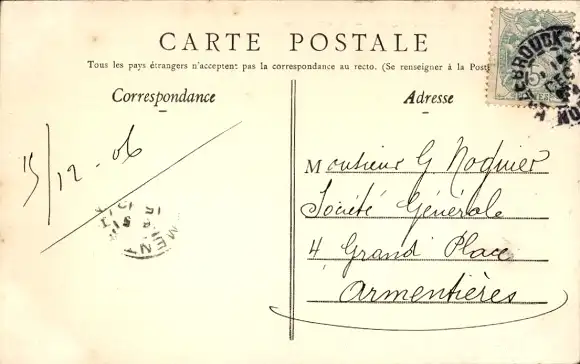 CARTE POSTALE
Tous les pays étrangers n'acceptent pas la correspondance au recto. (Se renseigner à la Poste
Correspondance
Adresse
15/12-06
Monsieur G Noquier
Société Générale
4 Grand Place
Armentières